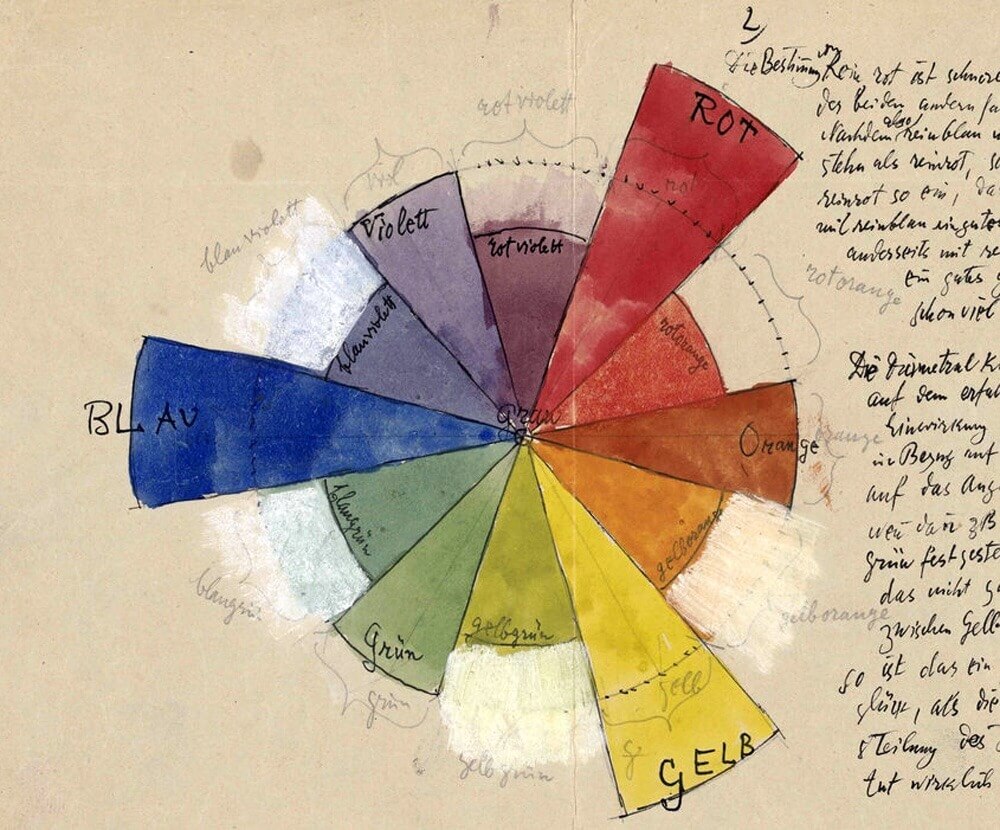 2)
Die Bestimmg von Rein rot ist schwere
der beiden andern fa
Nachdem also reinblau u
stehn als reinrot, so
reinrot so ein, da
mit reinblau
anderseits mit re
ein gutes
schon viel
rot violett
viol
rot
blauviolett
rotorange
ROT
Violett
rotviolett
blauviolett
rotorange
BLAU
Grau
Orange
orange
blaugrün
gelborange
blaugrün
gelborange
Grün
gelbgrün
grün
gelb
gelbgrün
g
GELB
Die Diametral K
auf dem erfah
Einwirkung
in Bezug auf
auf das Aug
wen dan zB
grün festgeste
das nicht
zwischen Gelb
so ist das ein
glück, als die
Teilung des
tut wirklich